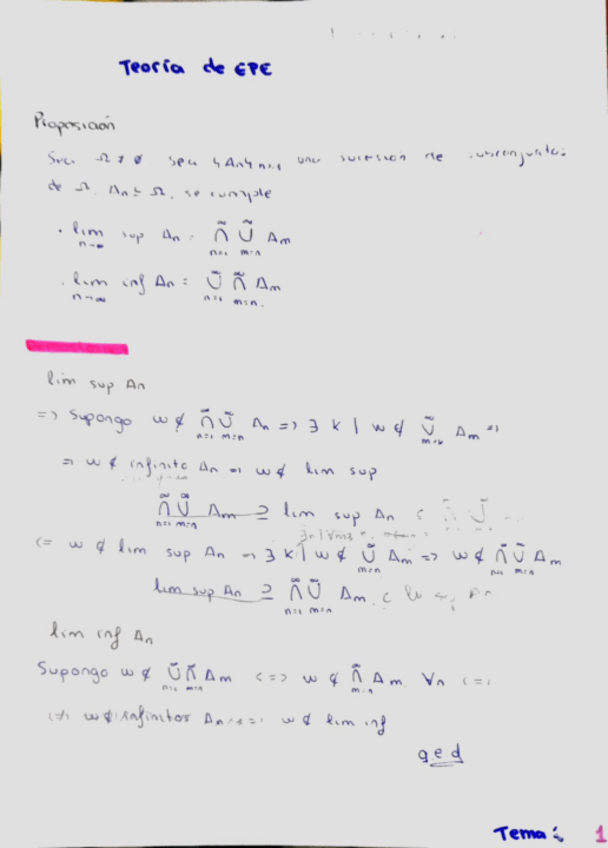 Teoría de EPE
Proposición
Sea Ω ≠ ∅ sea {An}n≥1 una sucesión de subconjuntos
de Ω. An ⊆ Ω, se cumple
. lim sup An = ∞∩n=1 ∞∪m=n Am
n→∞
. lim inf An = ∞∪n=1 ∞∩m=n Am
n→∞
lim sup An
=> Supongo w ∉ ∞∩n=1 ∞∪m=n An => ∃ k | w ∉ ∞∪m=k Am =>
=> w ∉ infinito An => w ∉ lim sup
∞∩n=1 ∞∪m=n Am ⊇ lim sup An ⊂
<= w ∉ lim sup An => ∃ k | w ∉ ∞∪m=n Am => w ∉ ∞∩n=1 ∞∪m=n Am
lim sup An ⊇ ∞∩n=1 ∞∪m=n Am.
lim inf An
Supongo w ∉ ∞∪n=1 ∞∩m=n Am <=> w ∉ ∞∩m=n Am ∀n <=>
w ∉ infinitos An w ∉ lim inf
qed
Tema: 1